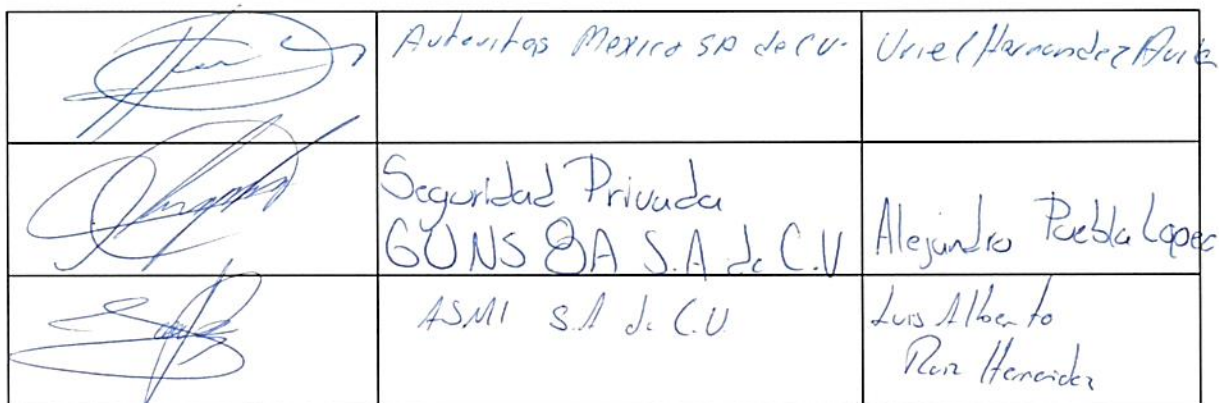 Mexico SA de CV.
Uriel Hernandez Avila
Seguridad Privada
GUNS 8A S.A de C.V
Alejandro Puebla Lopez
ASMI S.A de C.V
Luis Alberto
Ruiz Hernandez